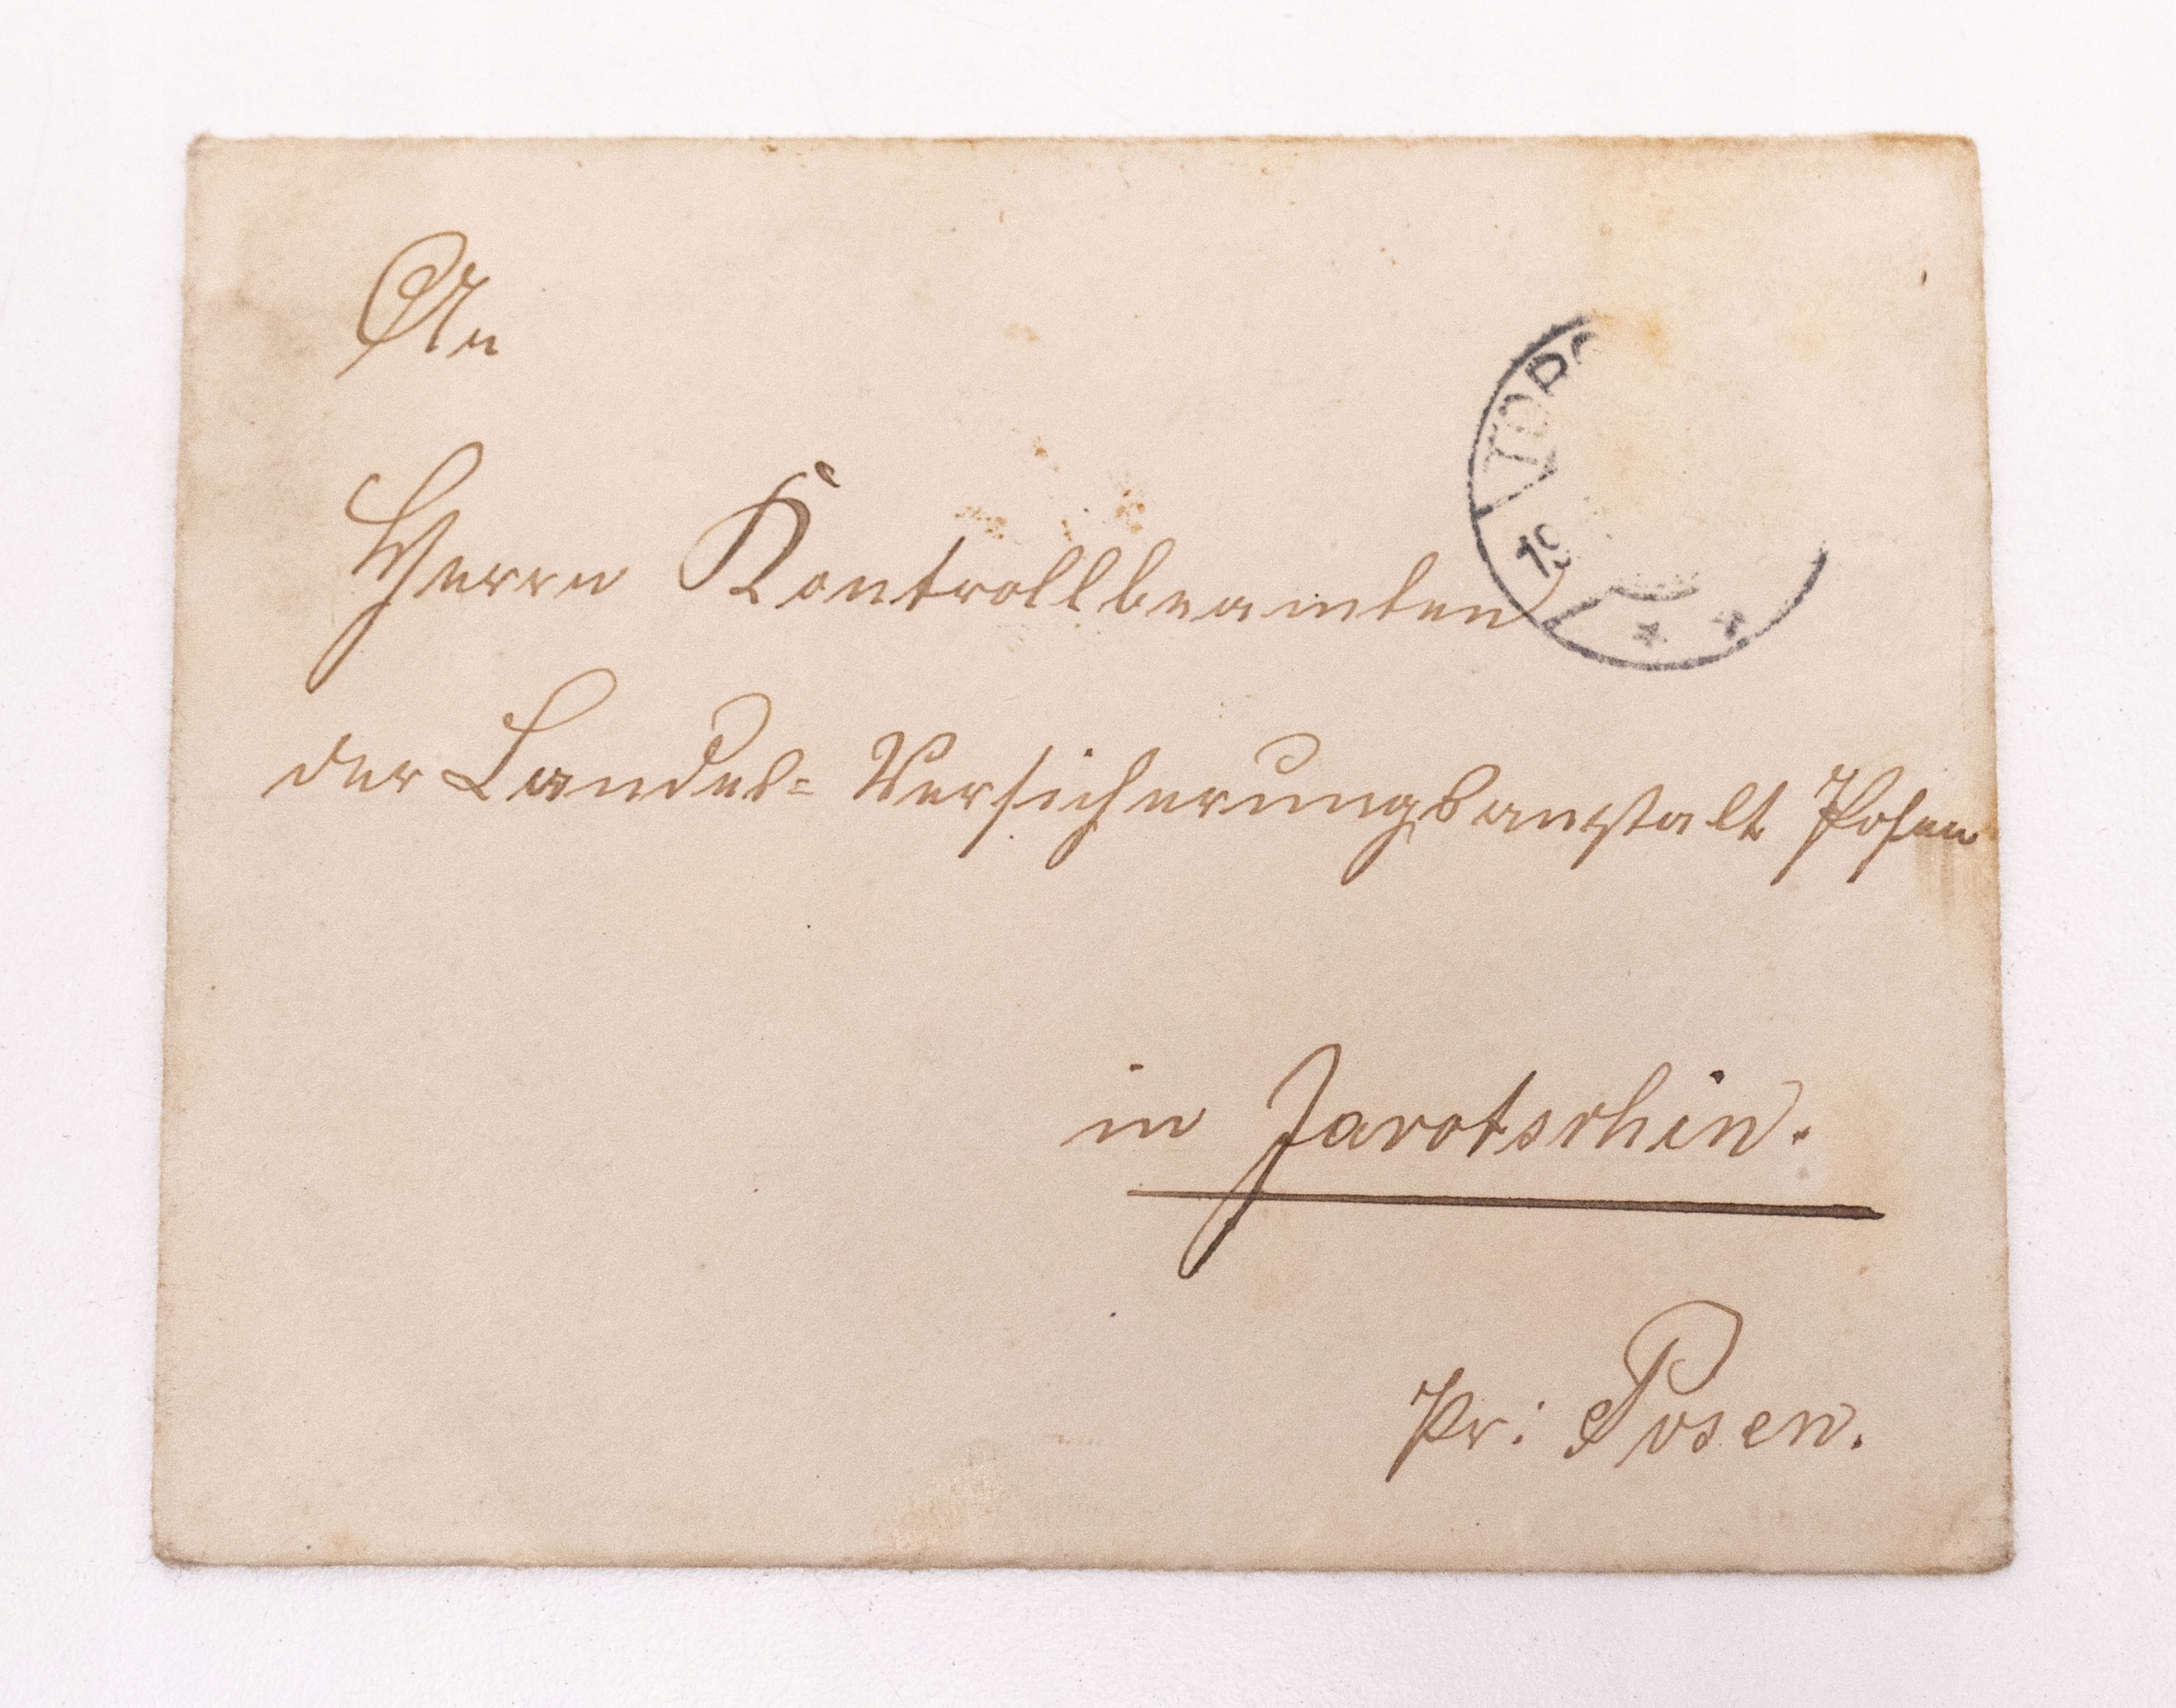 An
Herrn Kontrollbeamten
der Landes-Versicherungsanstalt Posen
in Jarotschin.
Pr: Posen.
19